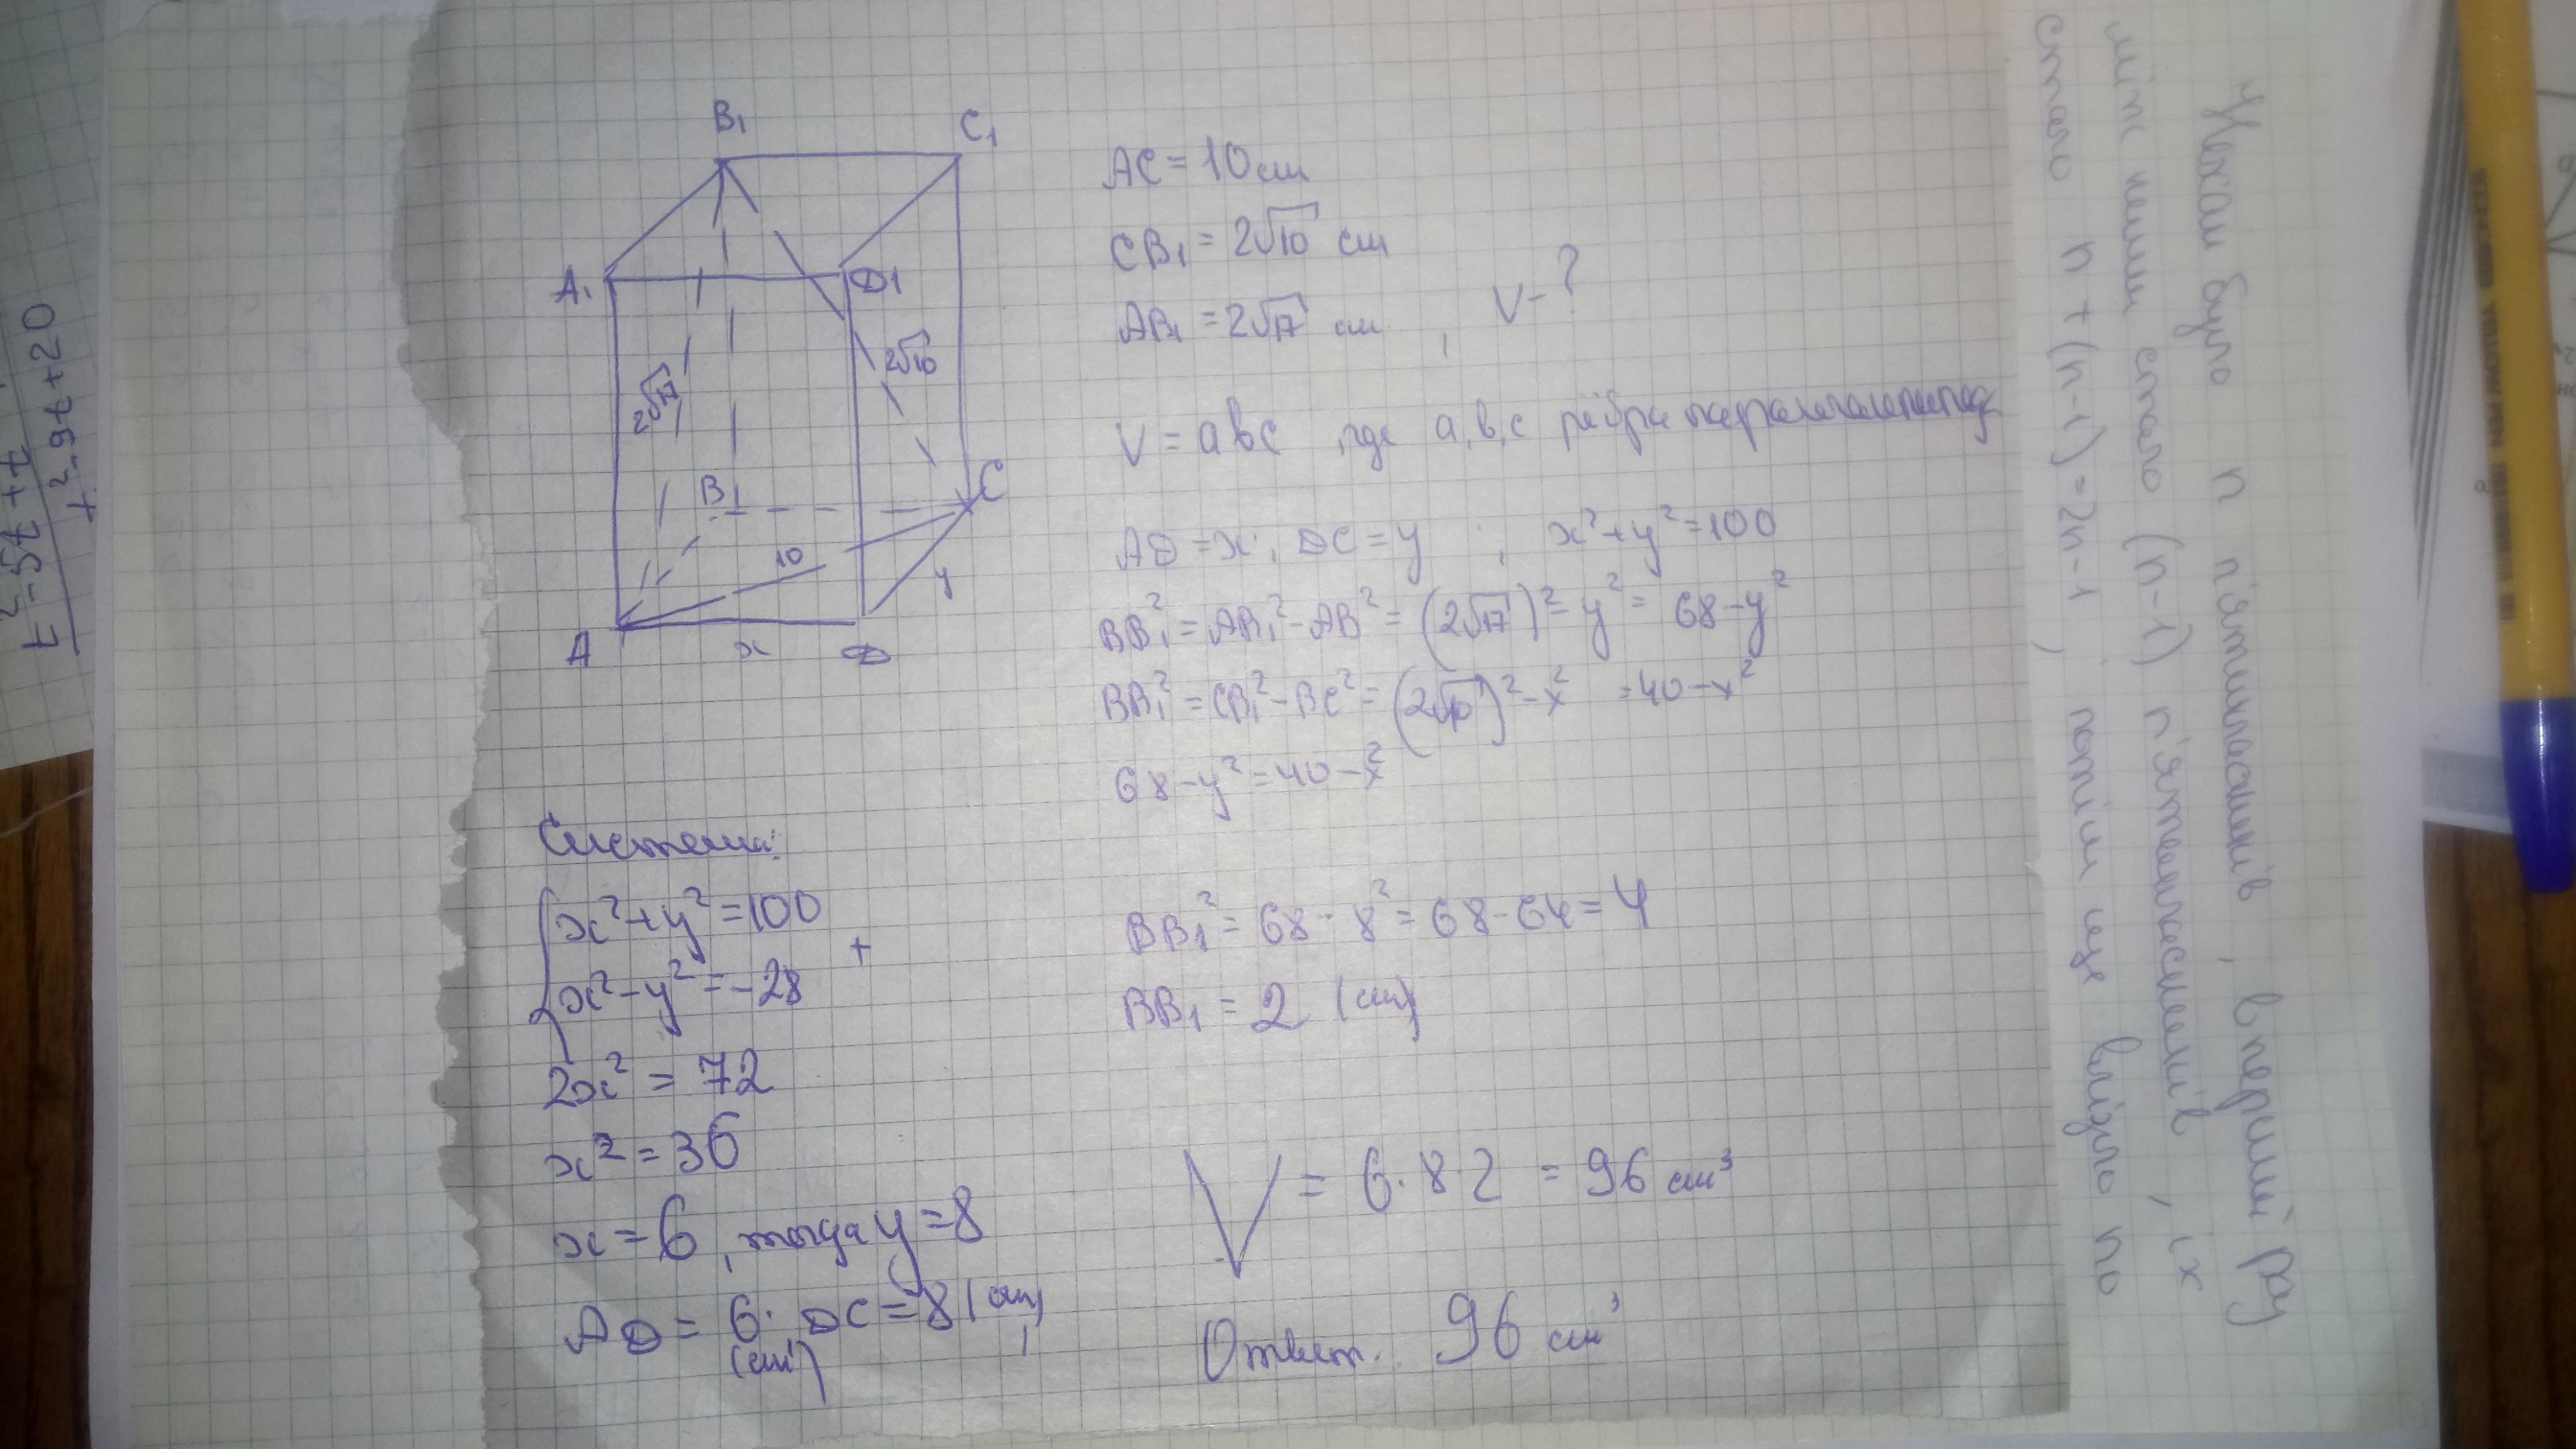 B₁
C₁
A₁
D1
2√17
2√10
B1
C
10
y
A
x
D
AC = 10 см
CB₁ = 2√10 см
AB₁ = 2√17 см , V-?
V = abc , где a, b, c рёбра
AD = x, DC = y ; x² + y² = 100
BB₁² = AB₁² - AB² = (2√17)² - y² = 68 - y²
BB₁² = CB₁² - BC² = (2√10)² - x² = 40 - x²
68 - y² = 40 - x²
Система:
x² + y² = 100
x² - y² = -28
+
2x² = 72
x² = 36
x = 6, тогда y = 8
AD = 6 (см), DC = 8 (см)
BB₁² = 68 - 8² = 68 - 64 = 4
BB₁ = 2 (см)
V = 6·8·2 = 96 см³
Ответ. 96 см³
Нехай було n п'ятикласників, в перший раз
між ними стало (n-1) п'ятикласників, їх
стало n + (n-1) = 2n-1, потім ще
t² - 5t + t
t² - 9t + 20